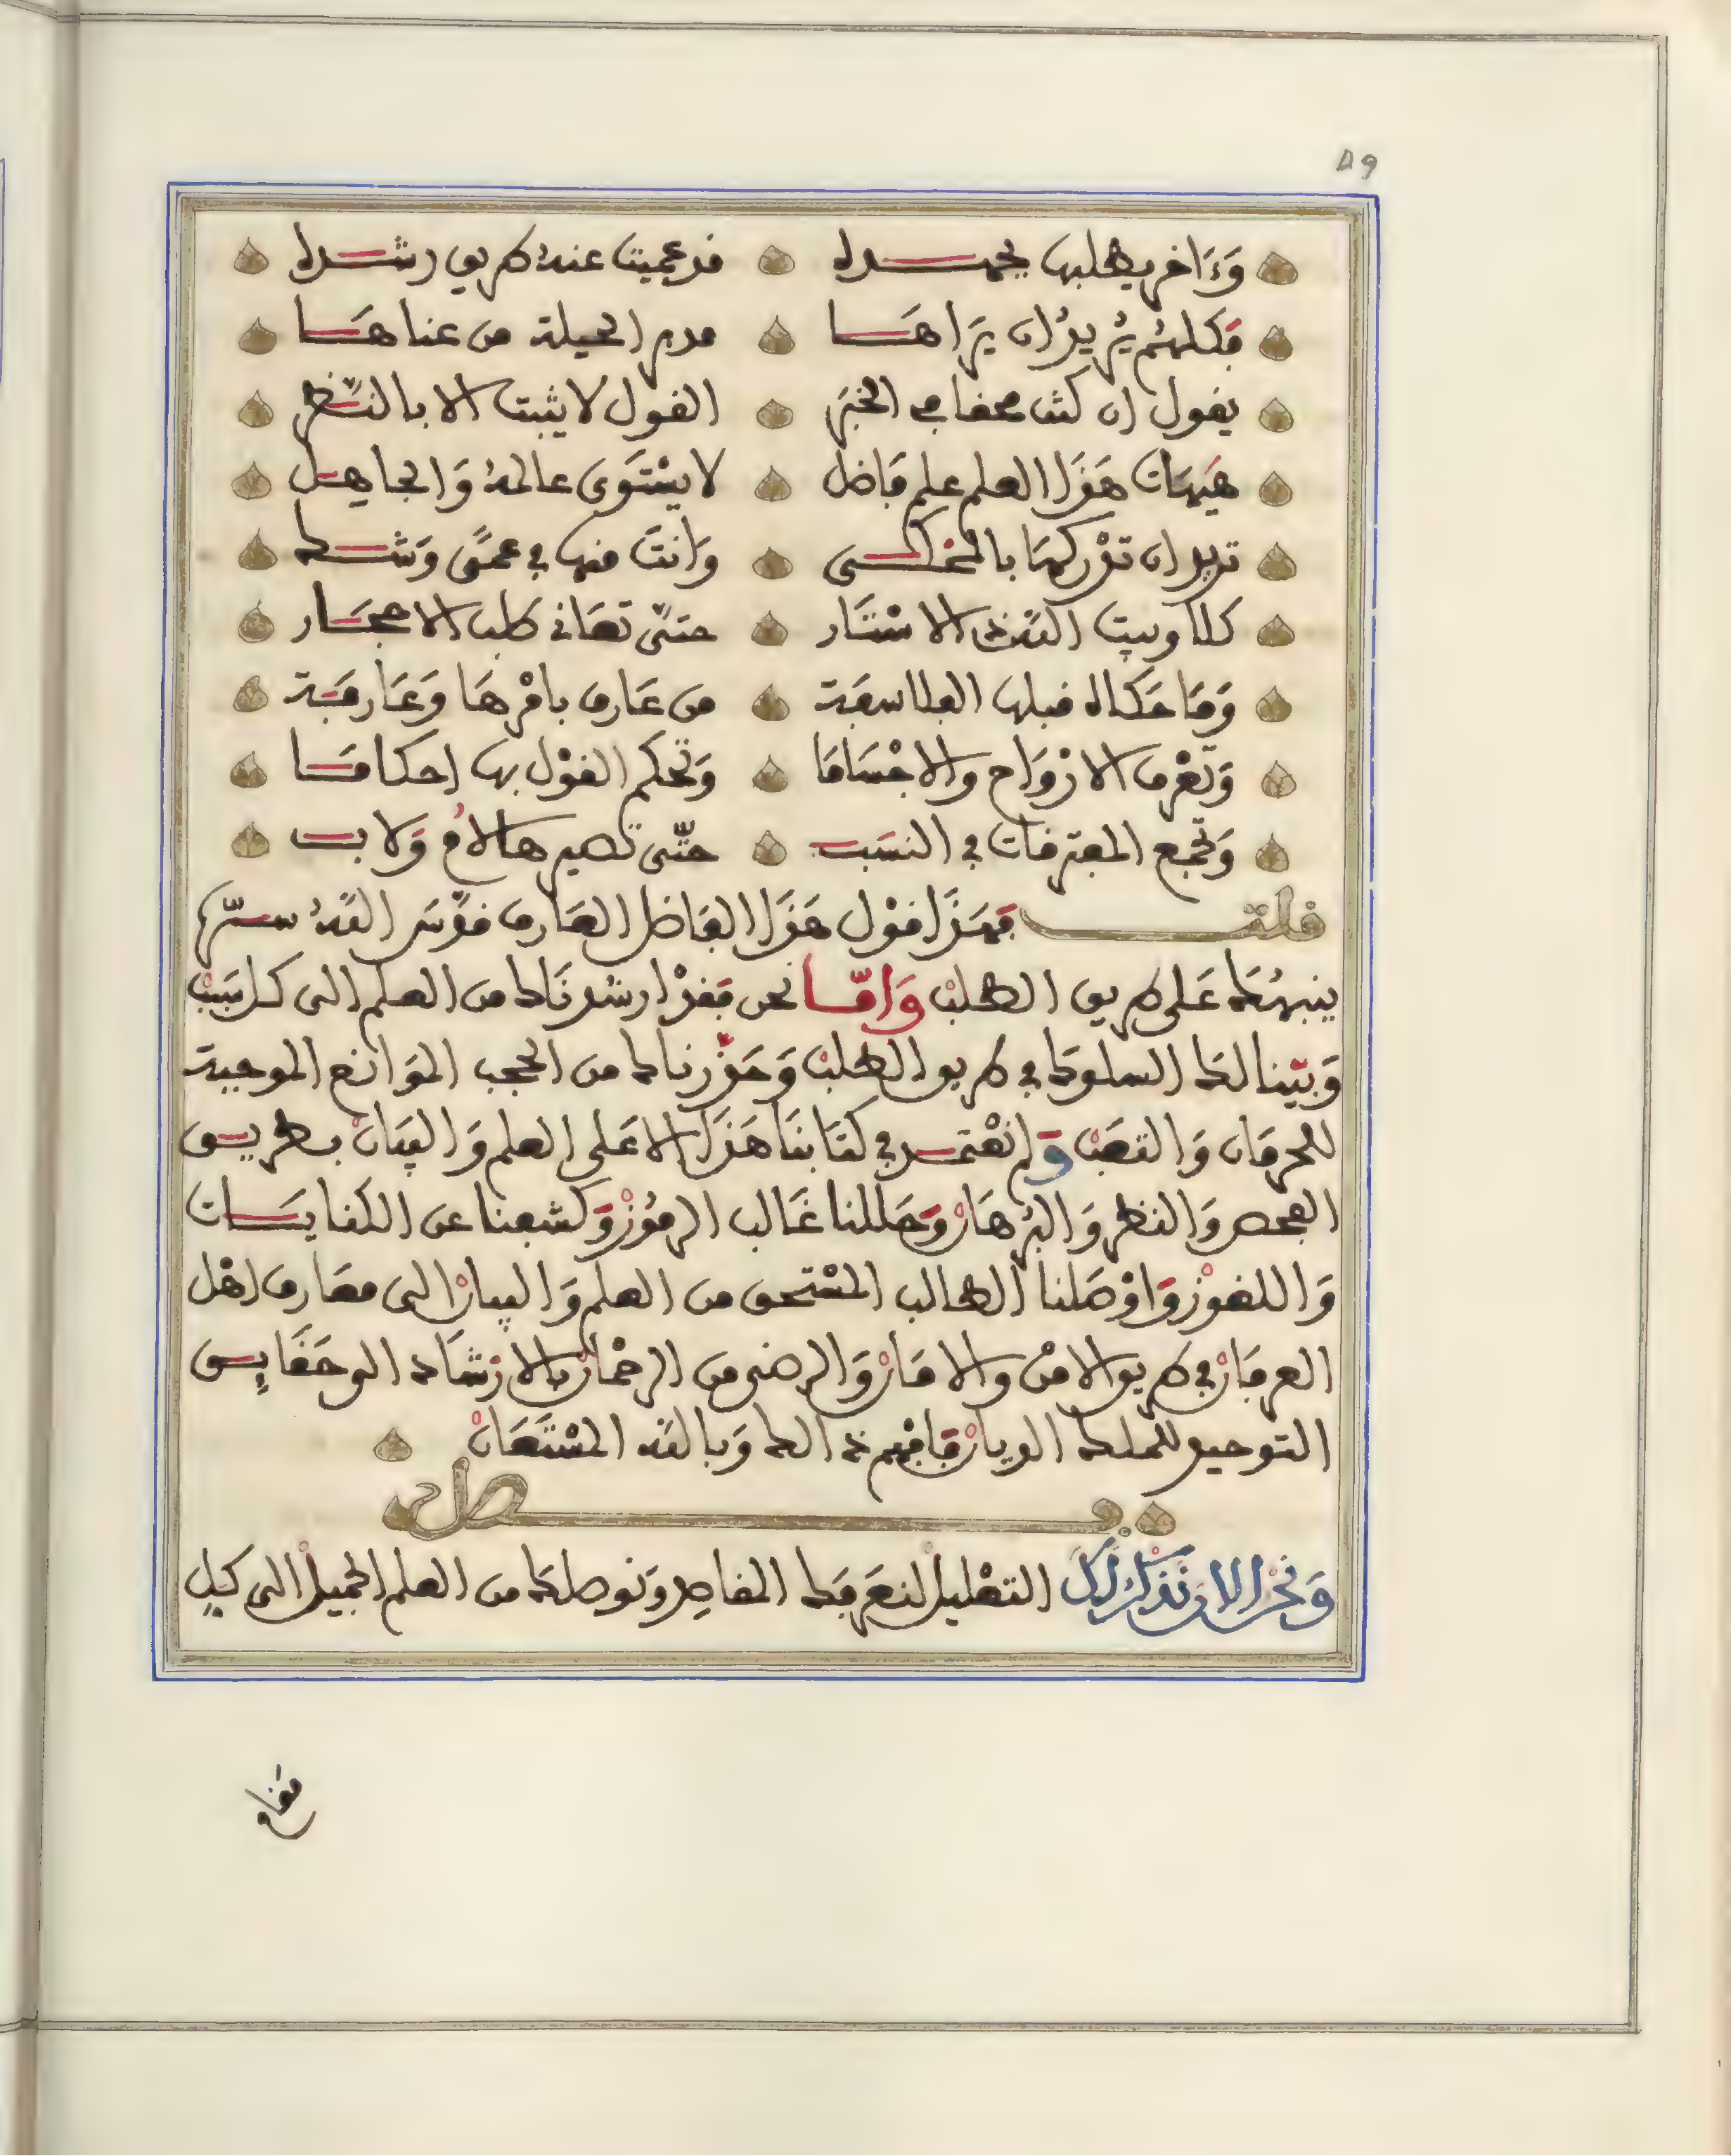 ٨٩
وَءَاخر يطلبها بجهده قد عميت عنه طريق رشده
فكلهُم يُريدُ ان يَراها عدم الحيلة من عناها
يقول ان كنت محقا في الخبَر القول لا يثبت الا بالنظر
هَيهَات هَذَا العلم علم فاضل لا يسْتَوى عالمهُ وَالجاهل
تريد ان تدْركهَا بالمضحك وَانتَ منها في عمًى وَشك
كلا وبيت اللَّه ذى الاسْتَار حتَّى تعَانى طلب الاحجَار
وَمَا حَكاه قبلها الفلاسفَة من عَارف بامْرهَا وَعَارفَة
وَتعْرف الارْوَاح والاجْسَامَا وَتحكم القوْل بها احكامَا
وَتجمع المفترقات في النسَب حتَّى تصير هالأم وَلاب
قلت فهَذَا قوْل هَذَا الفَاضل العَارف قدَّسَ اللَّهُ سرَّه
ينبهُكَ عَلى طريق الطلبْ وَامَّا نحن فقدْ ارشدنَاك من العلم الى كل سَبَبْ
وَبيَّنا لك السلوك في طريق الطلبْ وَحَذَّرناك من الحجب الموَانع الموجبة
للحرمَان وَالتعَبْ وَلم نعْتمد في كتَابنَا هَذَا الا عَلى العلم وَالبيَانْ بطريق
الفحص وَالنظر وَالبُرهَانْ وَحَللنا غَالب الرمُوْزْ وَكشفنا عن الكنايَات
وَاللغوْزْ وَاوْصَلنا الطالب المسْتحق من العلم وَالبيانْ الى معَارف اهْل
العرفَانْ في طريق الامْن والامَانْ وَالرضى من الرحْمانْ بالارْشَاد الى حَقَايق
التوحيد للملك الديانْ فافْهم ذلك وَبالله المسْتَعَانْ
فصل
وَنحْن الان نذكرُ لكَ التعْليل لنعَرفَك المقاصِد وَنوصلكَ من العلم الجميل الى كل